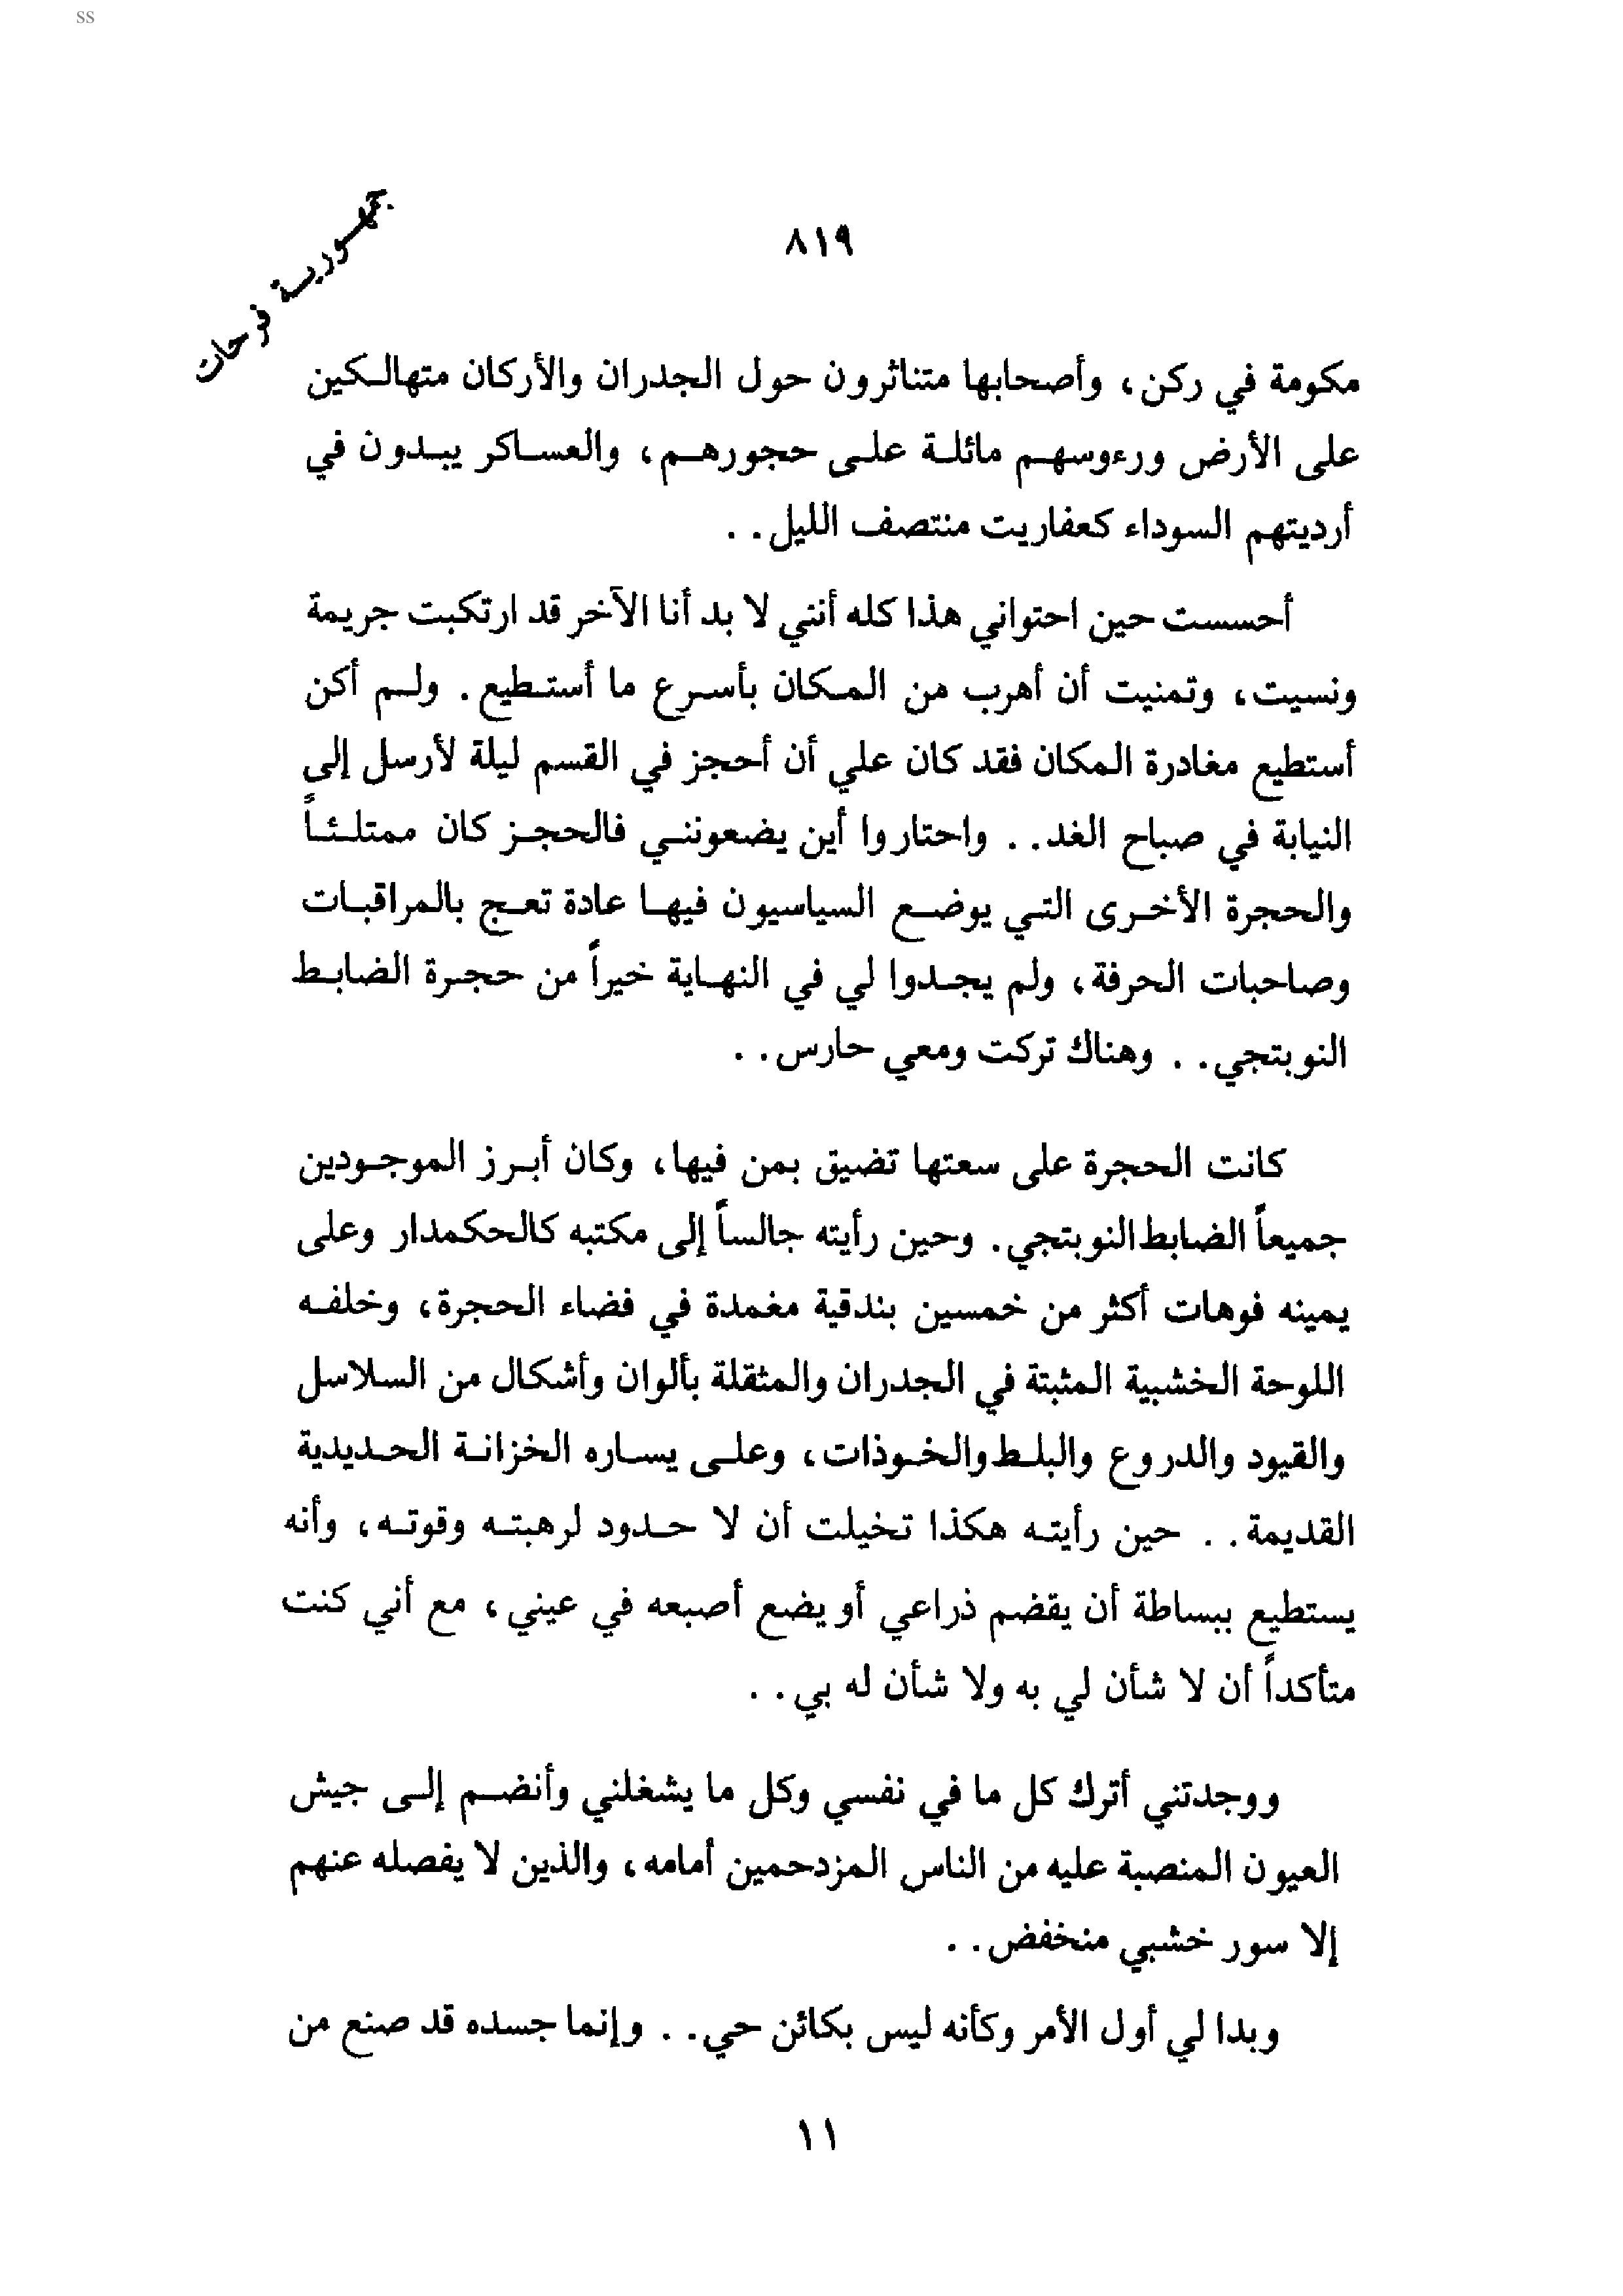 ss
جمهورية فرحات
٨١٩
مكومة في ركن، وأصحابها متناثرون حول الجدران والأركان متهالكين
على الأرض ورءوسهم مائلة على حجورهم، والعساكر يبدون في
أرديتهم السوداء كعفاريت منتصف الليل..
أحسست حين احتواني هذا كله أنني لا بد أنا الآخر قد ارتكبت جريمة
ونسيت، وتمنيت أن أهرب من المكان بأسرع ما أستطيع. ولم أكن
أستطيع مغادرة المكان فقد كان علي أن أحجز في القسم ليلة لأرسل إلى
النيابة في صباح الغد.. واحتاروا أين يضعونني فالحجز كان ممتلئاً
والحجرة الأخرى التي يوضع السياسيون فيها عادة تعج بالمراقبات
وصاحبات الحرفة، ولم يجدوا لي في النهاية خيراً من حجرة الضابط
النوبتجي.. وهناك تركت ومعي حارس..
كانت الحجرة على سعتها تضيق بمن فيها، وكان أبرز الموجودين
جميعاً الضابط النوبتجي. وحين رأيته جالساً إلى مكتبه كالحكمدار وعلى
يمينه فوهات أكثر من خمسين بندقية مغمدة في فضاء الحجرة، وخلفه
اللوحة الخشبية المثبتة في الجدران والمثقلة بألوان وأشكال من السلاسل
والقيود والدروع والبلط والخوذات، وعلى يساره الخزانة الحديدية
القديمة.. حين رأيته هكذا تخيلت أن لا حدود لرهبته وقوته، وأنه
يستطيع ببساطة أن يقضم ذراعي أو يضع أصبعه في عيني، مع أني كنت
متأكداً أن لا شأن لي به ولا شأن له بي..
ووجدتني أترك كل ما في نفسي وكل ما يشغلني وأنضم إلى جيش
العيون المنصبة عليه من الناس المزدحمين أمامه، والذين لا يفصله عنهم
إلا سور خشبي منخفض..
وبدا لي أول الأمر وكأنه ليس بكائن حي.. وإنما جسده قد صنع من
١١